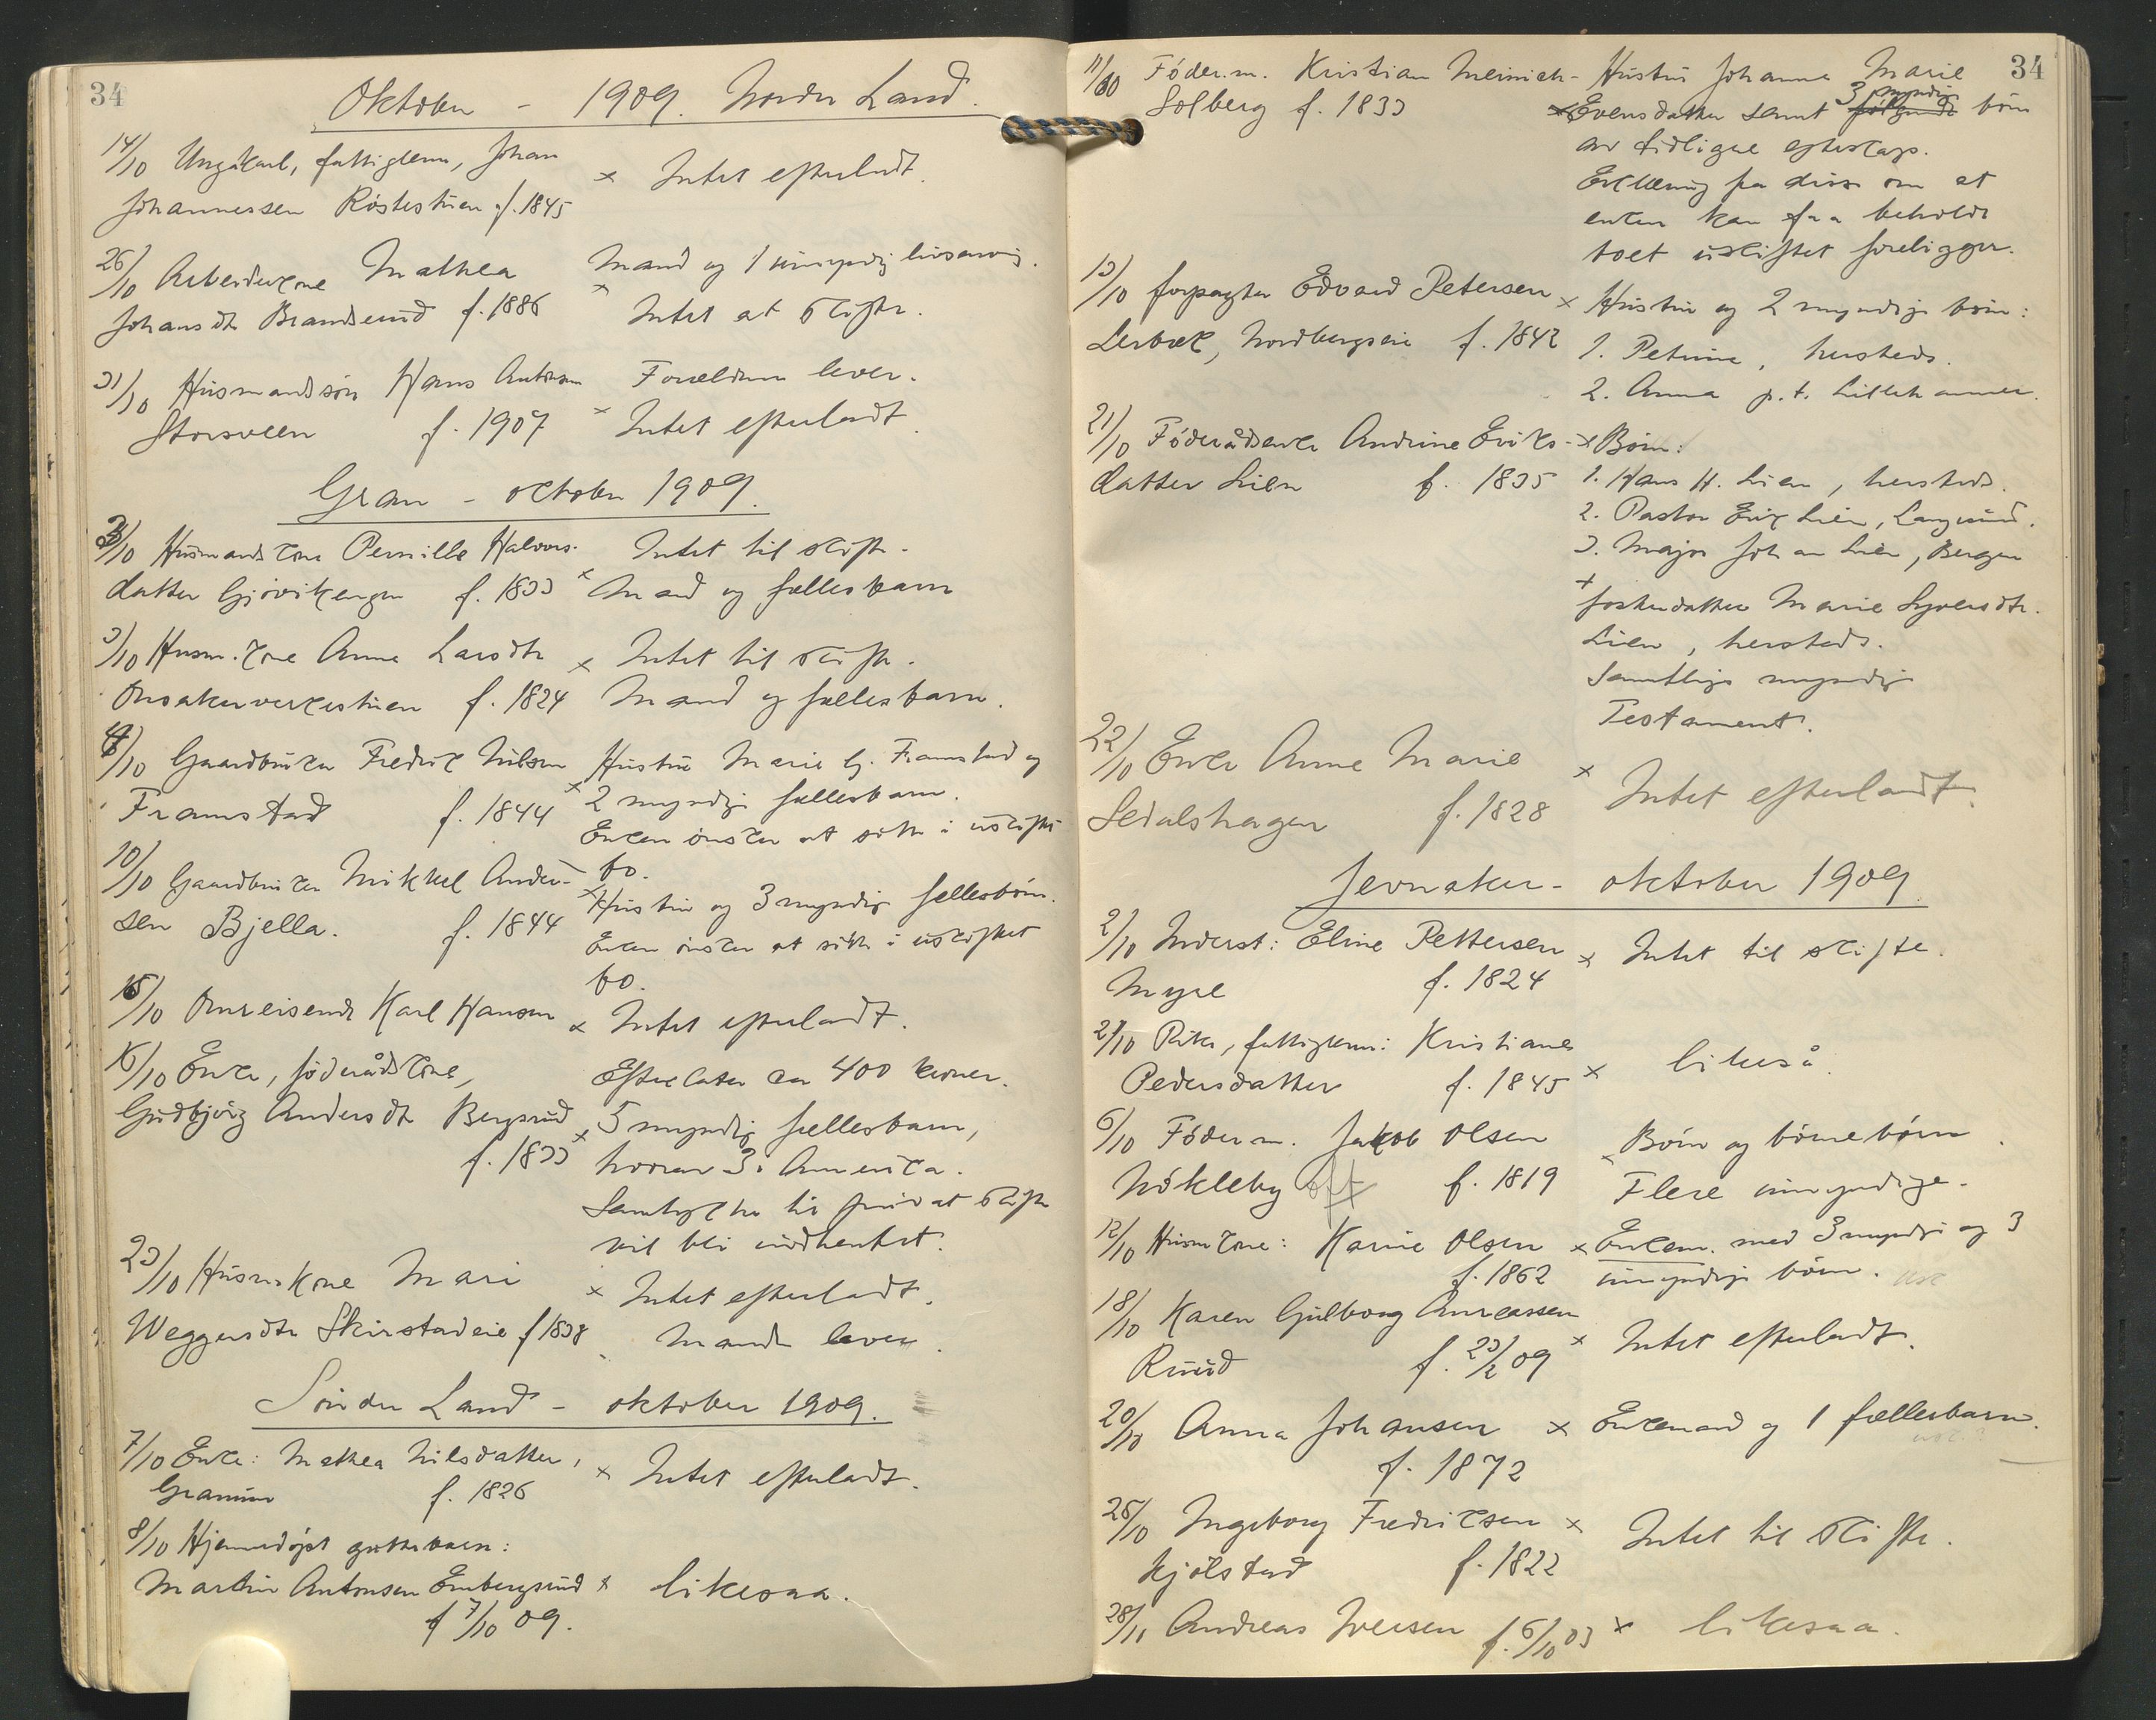 34
Oktober - 1909. Nordre Land.
14/10 Ungkarl, fattiglem, Johan
Johannessen Røstestuen f. 1845
x Intet efterladt.
26/10 Arbeiderkone Mathea
Johansdtr Brandserud f. 1886
Mand og 1 umyndig livsarving.
x
Intet at skifte.
31/10 Husmandssøn Hans Antonsen
Storsveen f. 1907
Forældrene lever.
x Intet efterladt.
Gran - oktober 1909.
3/10 Husmandskone Pernille Halvors-
datter Gjøvikengen f. 1833
Intet til skifte.
x Mand og fællesbarn
3/10 Husm.kone Anne Larsdtr
f. 1824
x Intet til skifte.
Mand og fællesbarn.
4/10 Gaardbruker Fredrik Nilsen
Framstad f. 1844
Hustru Marie G. Framstad og
x 2 myndige fællesbarn.
Enken ønsker at sitte i uskiftet
bo.
10/10 Gaardbruker Mikkel Ander-
sen Bjella. f. 1844
x Hustru og 3 myndige fællesbørn.
Enken ønsker at sitte i uskiftet
bo.
15/10 Omreisende Karl Hansen
x Intet efterladt.
16/10 Enke, føderådskone,
Gudbjørg Andersdtr Bergsrud
f. 1833
Efterlater ca 400 kroner.
x 5 myndige fællesbarn,
hvorav 3 i Amerika.
Samtykke til privat skifte
vil bli indhentet.
23/10 Husmskone Mari
Weggersdtr Skirstadeie f 1838
x Intet efterladt.
Manden lever.
Søndre Land - oktober 1909.
7/10 Enke: Mathea Nilsdatter,
Granum f. 1826
x Intet efterladt.
8/10 Hjemmedøpt guttebarn:
Martin Antonsen Embergsrud
f 7/10 09.
x likesaa.
34
11/10 Føder.m. Kristian Meinich-
Solberg f. 1833
Hustru Johanne Marie
x Evensdatter samt 3 myndige følgende børn
av tidligere egteskap.
Erklæring fra disse om at
enken kan faa beholde
boet uskiftet foreligger.
13/10 forpagter Edvard Petersen
Lerbæk, Nordbergseie f. 1842
x Hustru og 2 myndige børn:
1. Petrine, hersteds.
2. Anna p.t. Lillehammer.
21/10 Føderådsenke Andrine Eriks-
datter Lien f. 1835
x Børn:
1. Hans H. Lien, hersteds.
2. Pastor Erik Lien, Langesund.
3. Major Johan Lien, Bergen
+
fosterdatter Marie Syversdtr.
Lien, hersteds.
Samtlige myndige
Testament.
22/10 Enke Anne Marie
Sedalshagen f. 1828
x Intet efterladt.
Jevnaker - oktober 1909
2/10 Inderst: Eline Pettersen
Myre f. 1824
x Intet til skifte.
27/10 Pike, fattiglem: Kristiane
Pedersdatter f. 1845
x likeså.
6/10 Føderm. Jakob Olsen
Nøkleby f. 1819
x Børn og børnebørn.
Flere umyndige.
12/10 Husmkone: Karine Olsen
f. 1862
x Enkem. med 3 myndige og 3
umyndige børn.
18/10 Karen Gulborg Andreassen
Ruud f. 23/2 09
x Intet efterladt.
20/10 Anna Johansen
f. 1872
x Enkemand og 1 fællesbarn.
26/10 Ingeborg Fredriksen
Kjølstad f. 1822
x Intet til skifte.
28/10 Andreas Iversen f. 6/10 03
x likesaa.